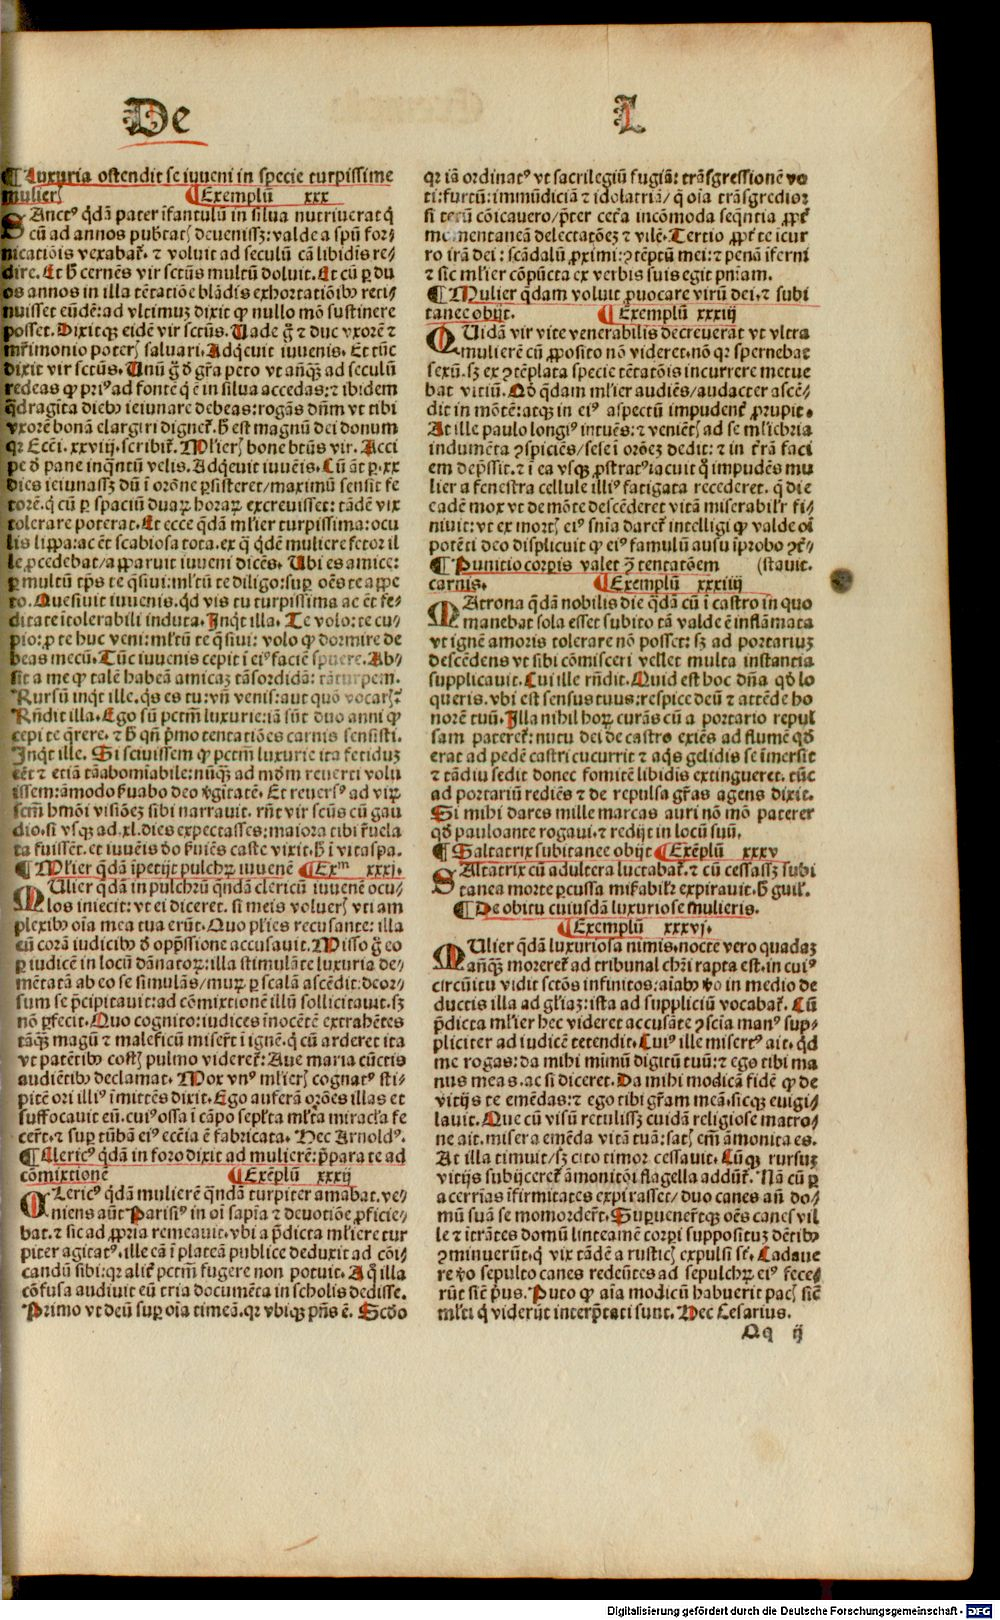 De
L
¶ Luxuria ostendit se iuueni in specie turpissime
mulierꝭ ¶ Exemplũ xxx
SAnctꝰ q̃dã pater ĩfantulũ in silua nutriuerat q̃
cũ ad annos pub̃tatꝭ deuenissꝫ: valde a spũ for⸗
nicatiõis vexabat̃. ⁊ voluit ad seculũ cã libidis re⸗
dire. Et h̃ cernẽs vir sctũs multũ doluit. Et cũ ꝑ du
os annos in illa tẽtatiõe blãdis exhortatiõibꝰ reti⸗
nuisset eũdẽ: ad vltimuꝫ dixit ꝙ nullo mõ sustinere
posset. Dixitqꝫ eidẽ vir sctũs. Uade g̃ ⁊ duc vxorẽ ⁊
mr̃imonio poterꝭ saluari. Adq̃euit iuuenis. Et tũc
dixit vir sctũs. Unũ g̃ d̃ gr̃a peto vt añq̃ꝫ ad seculũ
redeas ꝙ priꝰ ad fontẽ q̃ ẽ in silua accedas: ⁊ ibidem
q̃dragĩta diebꝰ ieiunare debeas: rogãs dñm vt tibi
vxorẽ bonã elargiri dignet̃. h̃ est magnũ dei donum
qꝛ Ecci. xxviij. scribit̃. Ml̃ierꝭ bone btũs vir. Acci
pe d̃ pane inq̃ntũ velis. Adq̃euit iuuẽis. Cũ ãt ꝑ .xx
dies ieiunassꝫ dũ ĩ orõne ꝑsisteret/ maximũ sensit fe
torẽ. q̃ cũ ꝑ spaciũ duaꝝ horaꝝ excreuisset: tãdẽ vix
tolerare poterat. Et ecce q̃dã ml̃ier turpissima: ocu
lis lippa: ac ẽt scabiosa tota. ex q̃ q̃dẽ muliere fetor il
le ꝓcedebat/ apparuit iuueni dicẽs. Ubi es amice:
ꝑ multũ tp̃s te q̃siui: ml̃tũ te diligo: suꝑ oẽs te appe
to. Quesiuit iuuenis. qd̃ vis tu turpissima ac ẽt fe⸗
ditate ĩtolerabili induta. Inq̃t illa. Te volo: te cu⸗
pio: ꝓ te huc veni: ml̃tũ te q̃siui: volo ꝙ dormire de
beas mecũ. Tũc iuuenis cepit ĩ eiꝰ faciẽ spuere. Ab⸗
sit a me ꝙ talẽ habeã amicaꝫ tã sordidã: tã turpem.
Rursũ inq̃t ille. q̃s es tu: vñ venis: aut quõ vocarꝭ?
Rñdit illa. Ego sũ pctm̃ luxurie: iã sũt duo anni ꝙ
cepi te q̃rere. ⁊ h̃ qñ p̃mo tentatiões carnis sensisti.
Inq̃t ille. Si sciuissem ꝙ pctm̃ luxurie ita fetiduꝫ
eẽt ⁊ etiã tã abomĩabile: nũq̃ꝫ ad mũdm reuerti volu
issem: ãmodo ẽuabo deo v̓gitatẽ. Et reuersꝰ ad viꝝ
sctm̃ hmõi visiõeꝫ sibi narrauit. rñt vir sctũs cũ gau
dio. si vsqꝫ ad .xl. dies expectasses: maiora tibi ẽuela
ta fuissẽt. et iuuẽis d̃o ẽuiẽs caste vixit. h̃ ĩ vitaspa.
¶ Ml̃ier q̃dã ĩpetijt pulchꝝ iuuenẽ ¶ Exᵐ xxxj.
MUlier q̃dã in pulchrũ q̃ndã clericũ iuuenẽ ocu⸗
los iniecit: vt ei diceret. si meis voluerꝭ vti am
plexibꝰ oĩa mea tua erũt. Quo pl̃ies recusante: illa
eũ corã iudicibꝰ d̃ opp̃ssione accusauit. Misso g̃ eo
ꝑ iudicẽ in locũ dãnatoꝝ: illa stimulãte luxuria de⸗
mẽtata ab eo se simulãs/ muꝝ ꝑ scalã ascẽdit: deor⸗
sum se p̃cipitauit: ad cõmixtionẽ illũ sollicitauit. sꝫ
nõ ꝑfecit. Quo cognito: iudices ĩnocẽtẽ extrahẽtes
tãq̃ꝫ magũ ⁊ maleficũ miser̃t ĩ ignẽ. q̃ cũ arderet ita
vt patẽtibꝰ costꝭ pulmo videret̃: Aue maria cũctis
audiẽtibꝰ declamat. Mox vnꝰ ml̃ierꝭ cognatꝰ sti⸗
pitẽ ori illiꝰ ĩmittẽs dixit. Ego auferã orões illas et
suffocauit eũ. cuiꝰ ossa ĩ cãpo sepl̃ta ml̃ta miracl̃a fe
cer̃t. ⁊ suꝑ tũbã eiꝰ ecc̃ia ẽ fabricata. Hec Arnoldꝰ.
¶ Clericꝰ q̃dã in foro dixit ad mulierẽ: p̃para te ad
cõmixtionẽ ¶ Exẽplũ xxxij
CLericꝰ q̃dã mulierẽ q̃ndã turpiter amabat. ve⸗
niens aũt Parisiꝰ in oĩ sapĩa ⁊ deuotiõe ꝓficie⸗
bat. ⁊ sic ad ꝓpria remeauit. vbi a p̃dicta ml̃iere tur
piter agitatꝰ. ille eã ĩ plateã publice deduxit ad cõi⸗
candũ sibi: qꝛ alit̃ pctm̃ fugere non potuit. A q̃ illa
cõfusa audiuit eũ tria documẽta in scholis dedisse.
Primo vt deũ suꝑ oĩa timeã. qꝛ vbiqꝫ p̃ñs ẽ. Scd̃o
qꝛ iã ordinatꝰ vt sacrilegiũ fugiã: trãsgressionẽ vo
ti: furtũ: immũdiciã ⁊ idolatriã/ q̃ oĩa trãsgredior
si tecũ cõicauero/ p̃ter ceter̃a incõmoda seq̃ntia ꝓpt̃
momentaneã delectatõeꝫ ⁊ vilẽ. Tertio ꝓpt̃ te icur
ro irã dei: scãdalũ ꝓximi: ꝯtẽptũ mei: ⁊ penã ĩferni
⁊ sic ml̃ier cõpũcta ex verbis suis egit pñiam.
¶ Mulier q̃dam voluit ꝓuocare virũ dei. ⁊ subi
tanee obijt. ¶ Exemplũ xxxiij
QUidã vir vite venerabilis decreuerat vt vltra
mulierẽ cũ ꝓposito nõ videret. nõ qꝛ spernebat
sexũ. sꝫ ex ꝯtẽplata specie tẽtatõis incurrere metue
bat vitiũ. Qd̃ q̃dam ml̃ier audiẽs/ audacter ascẽ⸗
dit in mõtẽ: atqꝫ in eiꝰ aspectũ impudent̃ ꝓrupit.
At ille paulo longiꝰ intuẽs: ⁊ veniẽtꝭ ad se ml̃iebria
indumẽta ꝯspiciẽs/ sese ĩ orõeꝫ dedit: ⁊ in tr̃rã faci
em dep̃ssit. ⁊ ĩ ea vsqꝫ ꝓstratꝰ iacuit q̃ impudẽs mu
lier a fenestra cellule illiꝰ fatigata recederet. q̃ die
eadẽ mox vt de mõte descẽderet vitã miserabilr̃ fi⸗
niuit: vt ex mortꝭ eiꝰ snĩa daret̃ intelligi ꝙ valde oĩ
potẽti deo displicuit ꝙ eiꝰ famulũ ausu ĩprobo ꝯt̃⸗
¶ Punitio corꝑis valet ꝯ̃ tentatõem (stauit.
carnis. ¶ Exemplũ xxxiiij
MAtrona q̃dã nobilis die q̃dã cũ ĩ castro in quo
manebat sola esset subito tã valde ẽ inflãmata
vt ignẽ amoris tolerare nõ posset: sꝫ ad portariuꝫ
descẽdens vt sibi cõmisceri vellet multa instantia
supplicauit. Cui ille rñdit. Quid est hoc dña qd̃ lo
queris. vbi est sensus tuus: respice deũ ⁊ attẽde ho
norẽ tuũ. Illa nihil hoꝝ curãs cũ a portario repul
sam pateret̃: nutu dei de castro exiẽs ad flumẽ qd̃
erat ad pedẽ castri cucurrit ⁊ aq̃s gelidis se ĩmersit
⁊ tãdiu sedit donec fomitẽ libidis extingueret. tũc
ad portariũ rediẽs ⁊ de repulsa gr̃as agens dixit.
Si mihi dares mille marcas auri nõ mõ paterer
qd̃ pauloante rogaui. ⁊ redijt in locũ suũ.
¶ Saltatrix subitanee obijt ¶ Exẽplũ xxxv
SAltatrix cũ adultera luctabat̃. ⁊ cũ cessassꝫ subi
tanea morte ꝑcussa mis̃abilr̃ expirauit. h̃ guil̃.
¶ De obitu cuiusdã luxuriose mulieris.
¶ Exemplũ xxxvj.
MUlier q̃dã luxuriosa nimis. nocte vero quadaꝫ
añq̃ꝫ moreret̃ ad tribunal chr̃i rapta est. in cuiꝰ
circũitu vidit sctõs infinitos: aĩabꝰ v̓o in medio de
ductis illa ad gl̃iaꝫ: ista ad suppliciũ vocabat̃. Cũ
p̃dicta ml̃ier hec videret accusãte ꝯsciã manꝰ sup⸗
pliciter ad iudicẽ tetendit. Cuiꝰ ille misertꝰ ait. qd̃
me rogas: da mihi minimũ digitũ tuũ: ⁊ ego tibi ma
nus meas. ac si diceret. Da mihi modicã fidẽ ꝙ de
vitijs te emẽdas: ⁊ ego tibi gr̃am meã. sicqꝫ euigi⸗
lauit. Que cũ visũ retulissꝫ cuidã religiose matro⸗
ne ait. misera emẽda vitã tuã: satꝭ em̃ ãmonita es.
At illa timuit/ sꝫ cito timor cessauit. Cũqꝫ rursuꝫ
vitijs subijceret̃ ãmonitõi flagella addũt̃. Nã cũ ꝑ
acerrĩas ĩfirmitates expirasset/ duo canes añ do⸗
mũ suã se momorder̃t. Suꝑuener̃tqꝫ oẽs canes vil
le ⁊ ĩtrãtes domũ linteamẽ corꝑi suppositũꝫ dẽtibꝰ
ꝯminuerũt. q̃ vix tãdẽ a rusticꝭ expulsi st̃. Cadaue
re v̓o sepulto canes redeũtes ad sepulchꝝ eiꝰ fece⸗
rũt sic̃ p̃us. Puto ꝙ aĩa modicũ habuerit pacꝭ sic̃
ml̃ti q̃ viderũt interp̃tati sunt. Hec Cesarius.
Qq ij
Digitalisierung gefördert durch die Deutsche Forschungsgemeinschaft - DFG